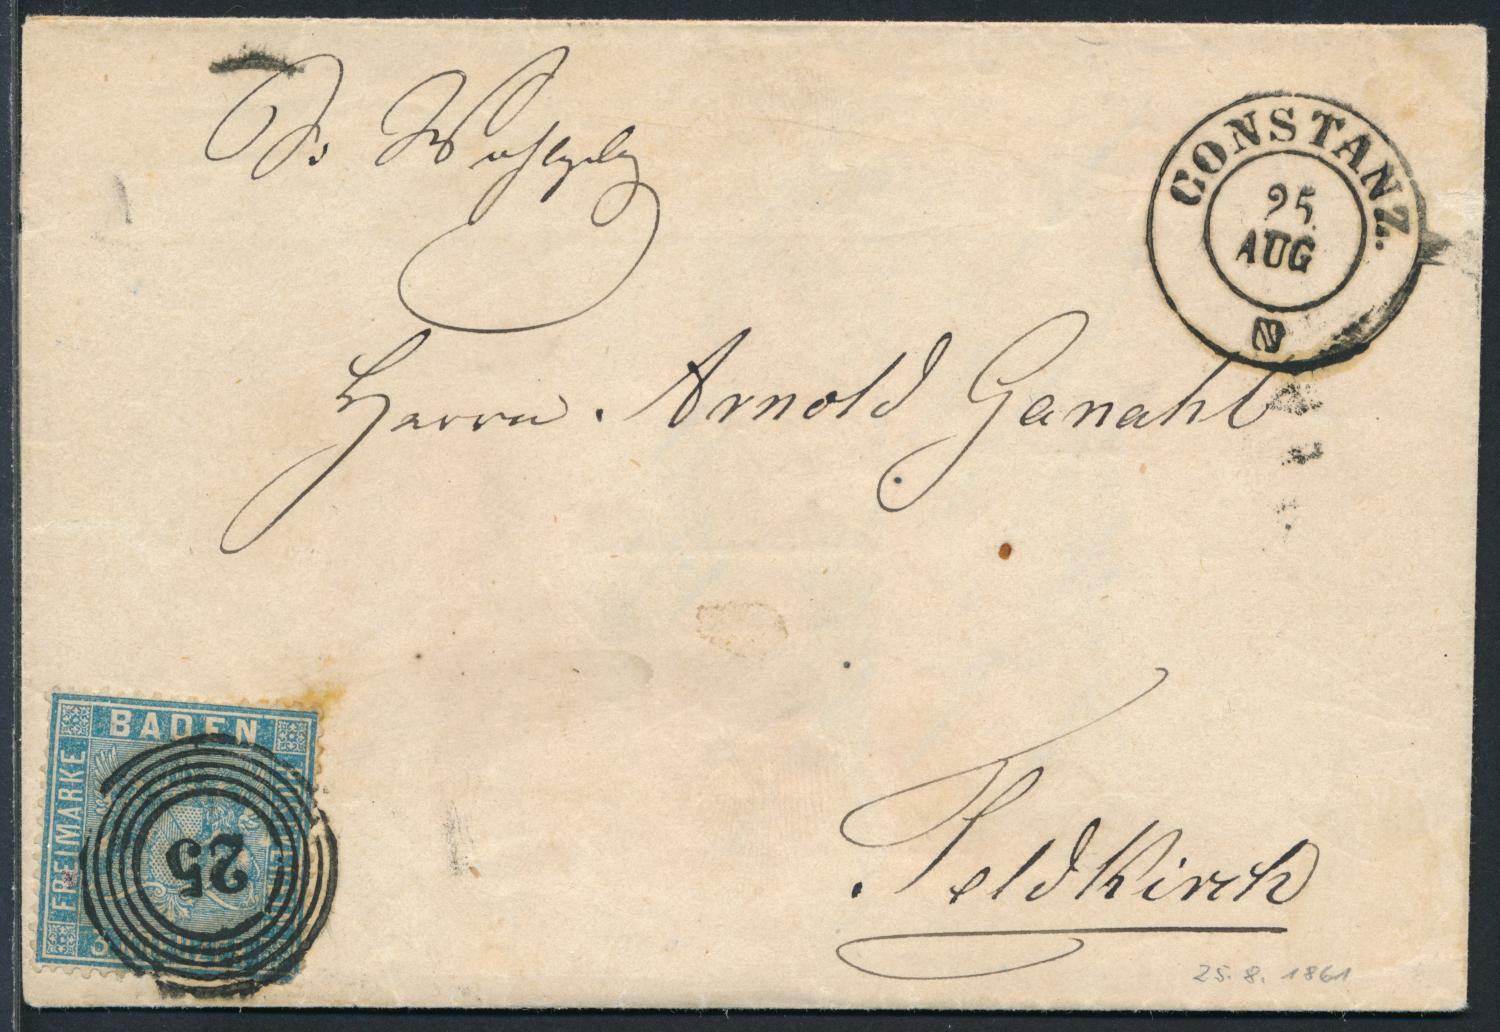 Sr. Wohlgeb
CONSTANZ.
25
AUG
N
Herrn Arnold Ganahl
Feldkirch
BADEN
FREIMARKE
25
25.8.1861